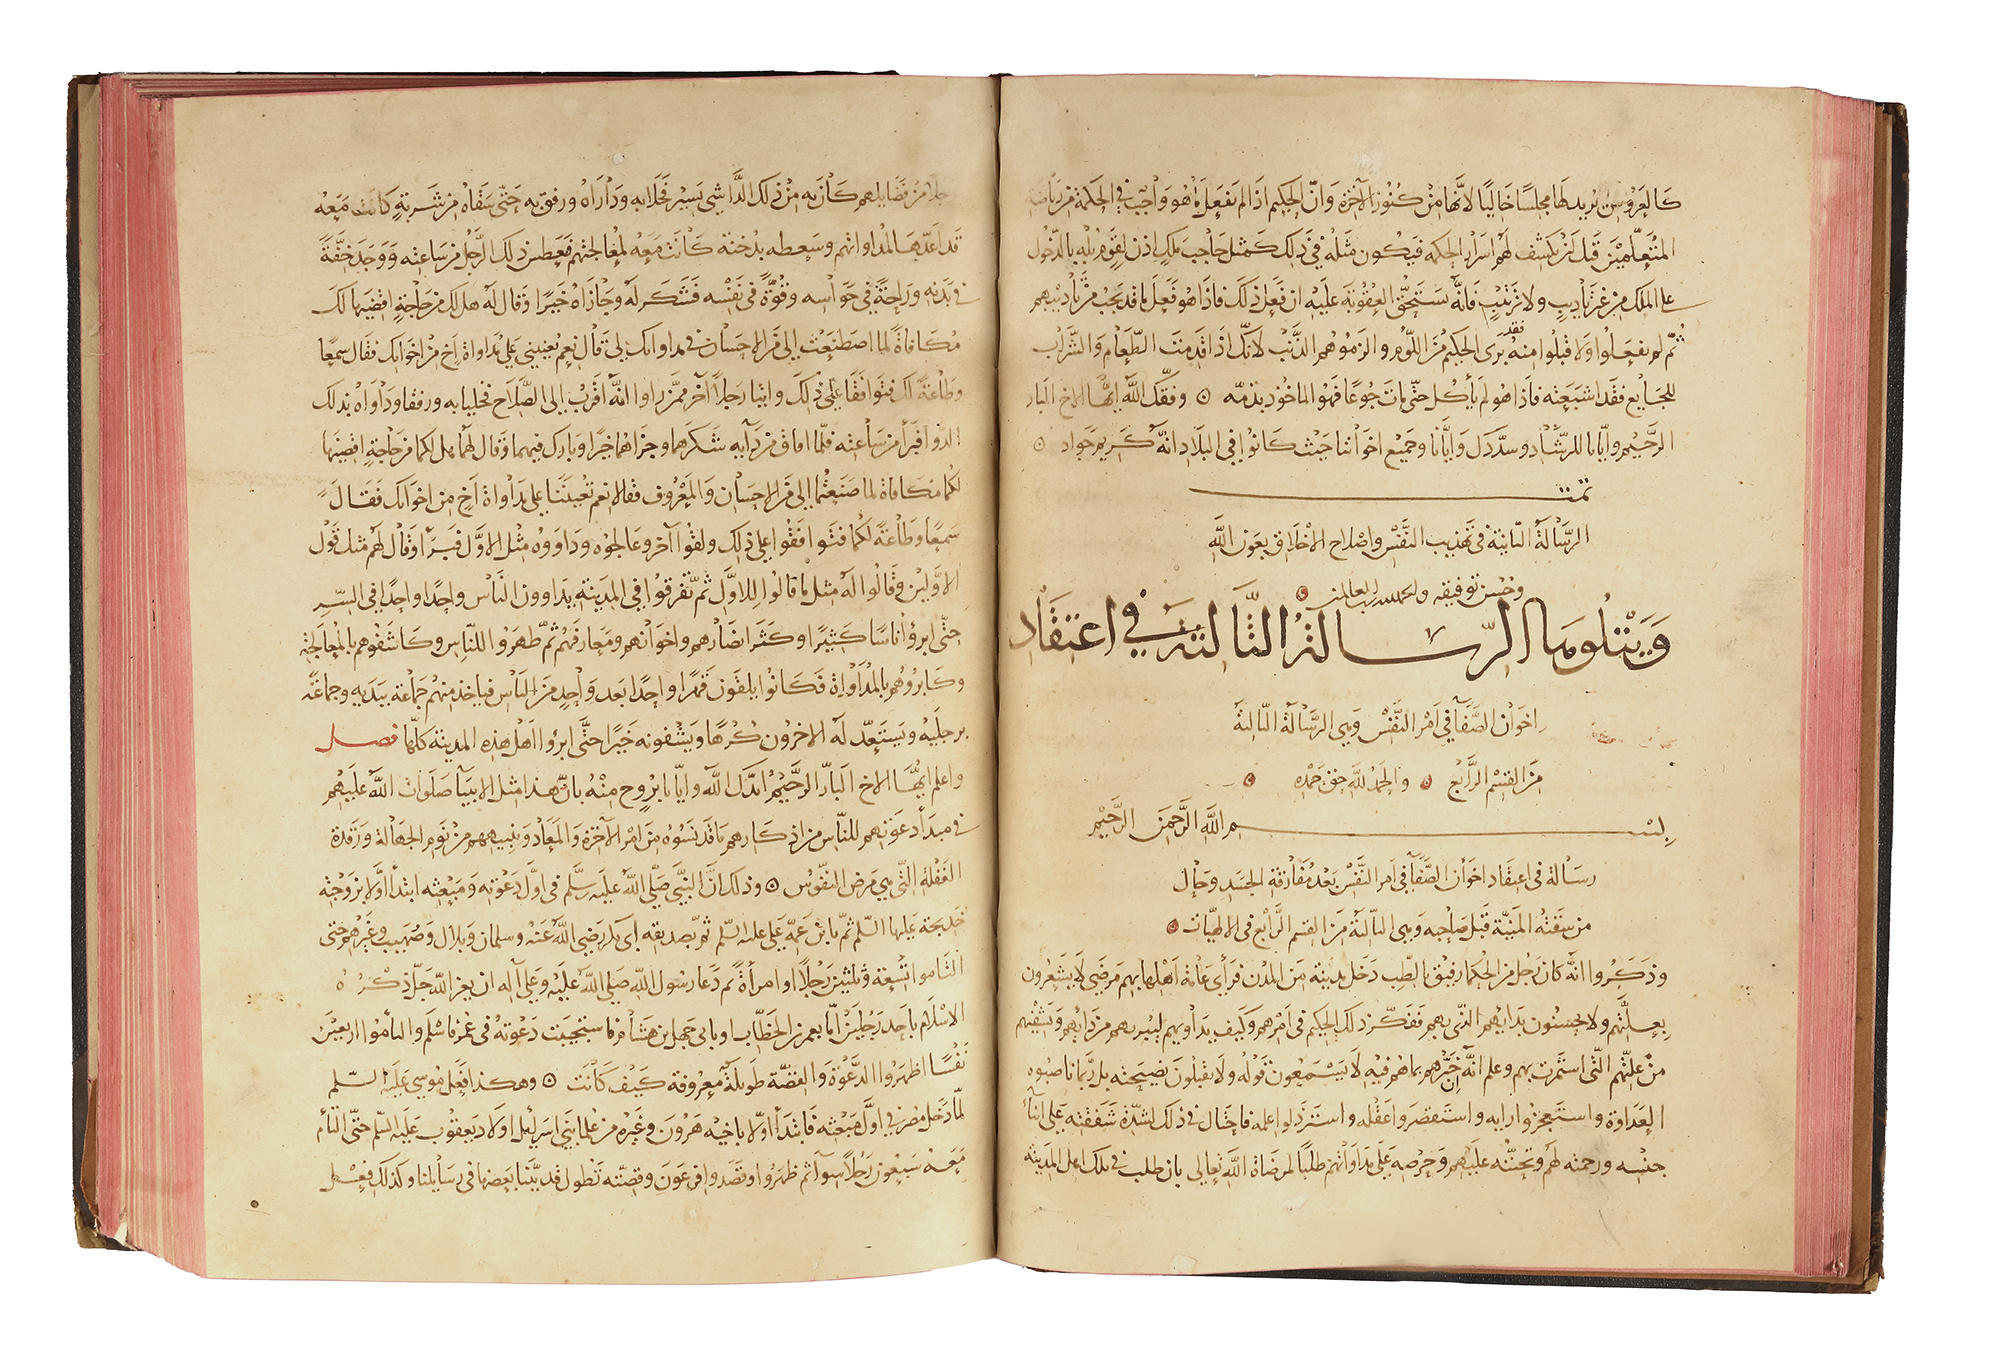 كالعروس يريد لها مجلسا خاليا لانها من كنوز الآخرة وان الحكيم اذا لم يفعل ما هو واجب في الحكمة من رياضة
المتعلمين قبل ان يكشف لهم اسرار الحكمة فيكون مثله في ذلك كمثل حاجب ملك اذن لقوم بله بالدخول
على الملك من غير تأديب ولا ترتيب فانه يستحق العقوبة عليه ان فعل ذلك فاذا هو فعل ما قد يجب من تأديبهم
ثم لم يفعلوا ولا قبلوا منه فقد برئ الحكيم من اللوم والزموهم الذنب لانك اذا قدمت الطعام والشراب
للجايع فقد اشبعته فاذا هو لم يأكل حتى مات جوعا فهو الماخوذ بذمه وفقك الله ايها الاخ البار
الرحيم وايانا للرشاد وسددك وايانا وجميع اخواننا حيث كانوا في البلاد انه كريم جواد
تمت
الرسالة الثانية في تهذيب النفس واصلاح الاخلاق بعون الله
وحسن توفيقه والحمد لله رب العالمين
ويتلوها الرسالة الثالثة في اعتقاد
اخوان الصفآ في امر النفس وهي الرسالة الثالثة
من القسم الرابع والحمد لله حق حمده
بسم الله الرحمن الرحيم
رسالة في اعتقاد اخوان الصفآ في امر النفس بعد مفارقة الجسد وحال
من سبقته المنية قبل صاحبه وهي الثالثة من القسم الرابع في الالهيات
وذكروا انه كان رجل من الحكما رفيق بالطب دخل مدينة من المدن فرأى عامة اهلها بهم مرض لا يشعرون
بعلتهم ولا يحسنون بدايهم الذي بهم ففكر ذلك الحكيم في امرهم وكيف يداويهم ليبريهم من دايهم ويشفيهم
من علتهم التي استمرت بهم وعلم انه ان اخبرهم بما هم فيه لا يسمعون قوله ولا يقبلون نصيحته بل ربما ناصبوه
العداوة واستعجزوا رايه واستنقصوا عقله واسترذلوا علمه فاحتال في ذلك لشدة شفقته على ابنآء
جنسه ورحمته لهم وتحننه عليهم وحرصه على مداواتهم طلبا لمرضاة الله تعالى بان طلب في تلك اهل المدينة
رجلا من فضايلهم كان به من ذلك الدا شي يسير فخلا به وداراه ورفق به حتى سقاه من شربة كانت معه
قد اعدها لمداواتهم وسعطه بدخنة كانت معه لمعالجتهم فعطس ذلك الرجل من ساعته ووجد خفة
في بدنه وراحة في حواسه وقوة في نفسه فشكر له وجازاه خيرا وقال له هل لك من حاجة اقضيها لك
مكافاة لما اصطنعت الي من الاحسان في مداواتك لي قال نعم تعينني على مداواة اخ من اخوانك فقال سمعا
وطاعة لك فتوافقا على ذلك واتيا رجلا آخر ممن راوا انه اقرب الى الصلاح فخليا به ورفقا وداواه بذلك
الدوا فبرأ من ساعته فلما افاق من دآيه شكرهما وجزاهما خيرا وبارك فيهما وقال لهما هل لكما من حاجة اقضيها
لكما مكافاة لما صنعتما الي من الاحسان والمعروف فقالا نعم تعيننا على مداواة اخ من اخوانك فقال
سمعا وطاعة لكما فتوافقوا على ذلك ولقوا آخر وعالجوه وداووه مثل الاول فبرآ وقال لهم مثل قول
الاولين وقالوا له مثل ما قالوا للاول ثم تفرقوا في المدينة يداوون الناس واحدا واحدا في السر
حتى ابرؤا اناسا كثيرا وكثر انصارهم واخوانهم ومعارفهم ثم ظهروا للناس وكاشفوهم بالمعالجة
وكابروهم بالمداواة فكانوا يلقون قهرا واحدا بعد واحد من الناس فياخذ منهم جماعة بيديه وجماعة
برجليه ويستعد له الاخرون كرها ويشفونه خيرا حتى ابرؤا اهل هذه المدينة كلها فصل
واعلم ايها الاخ البار الرحيم ايدك الله وايانا بروح منه بان هذا مثل الانبيآ صلوات الله عليهم
في مبدأ دعوتهم للناس من اذكارهم ما قد نسوه من امر الآخرة والمعاد وتنبيههم من نوم الجهالة ورقدة
الغفلة التي هي مرض النفوس وذلك ان النبي صلى الله عليه وسلم في اول دعوته ومبعثه ابتدأ اولا بزوجته
خديجة عليها السلم ثم بابن عمه علي عليه السلم ثم بصديقه ابي بكر رضي الله عنه وسلمان وبلال وصهيب وغيرهم حتى
التاموا تسعة وثلثين رجلا وامرأة ثم دعا رسول الله صلى الله عليه وعلى آله ان يعز الله جل ذكره
الاسلام باحد رجلين اما بعمر بن الخطاب او بابي جهل بن هشام فاستجيبت دعوته في عمر فاسلم والتأموا اربعين
نفسا اظهروا الدعوة والقصة طويلة معروفة كيف كانت وهكذا فعل موسى عليه السلم
لما دخل مصر في اول مبعثه فابتدأ اولا باخيه هرون وغيره من علما بني اسرائيل اولاد يعقوب عليه السلم حتى التأم
معه سبعون رجلا سوآ ثم ظهروا وقصدوا فرعون وقصته تطول قد بينا بعضها في رسايلنا وكذلك فعل